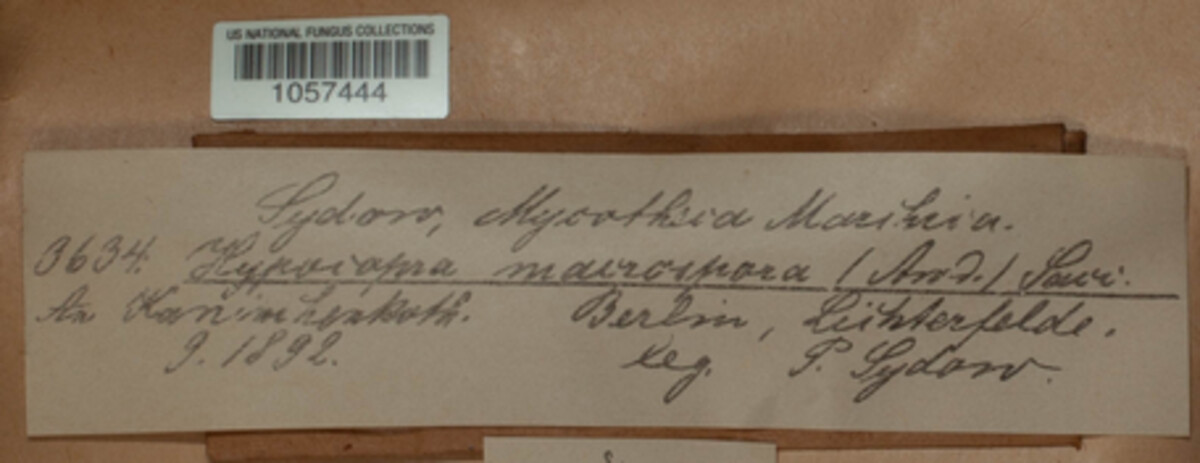 US NATIONAL FUNGUS COLLECTIONS
1057444
Sydow, Mycotheca Marchica.
3634. Hypocopra macrospora (Awd.) Sacc.
An Kaninchenkoth. Berlin, Lichterfelde.
9. 1892. leg. P. Sydow.